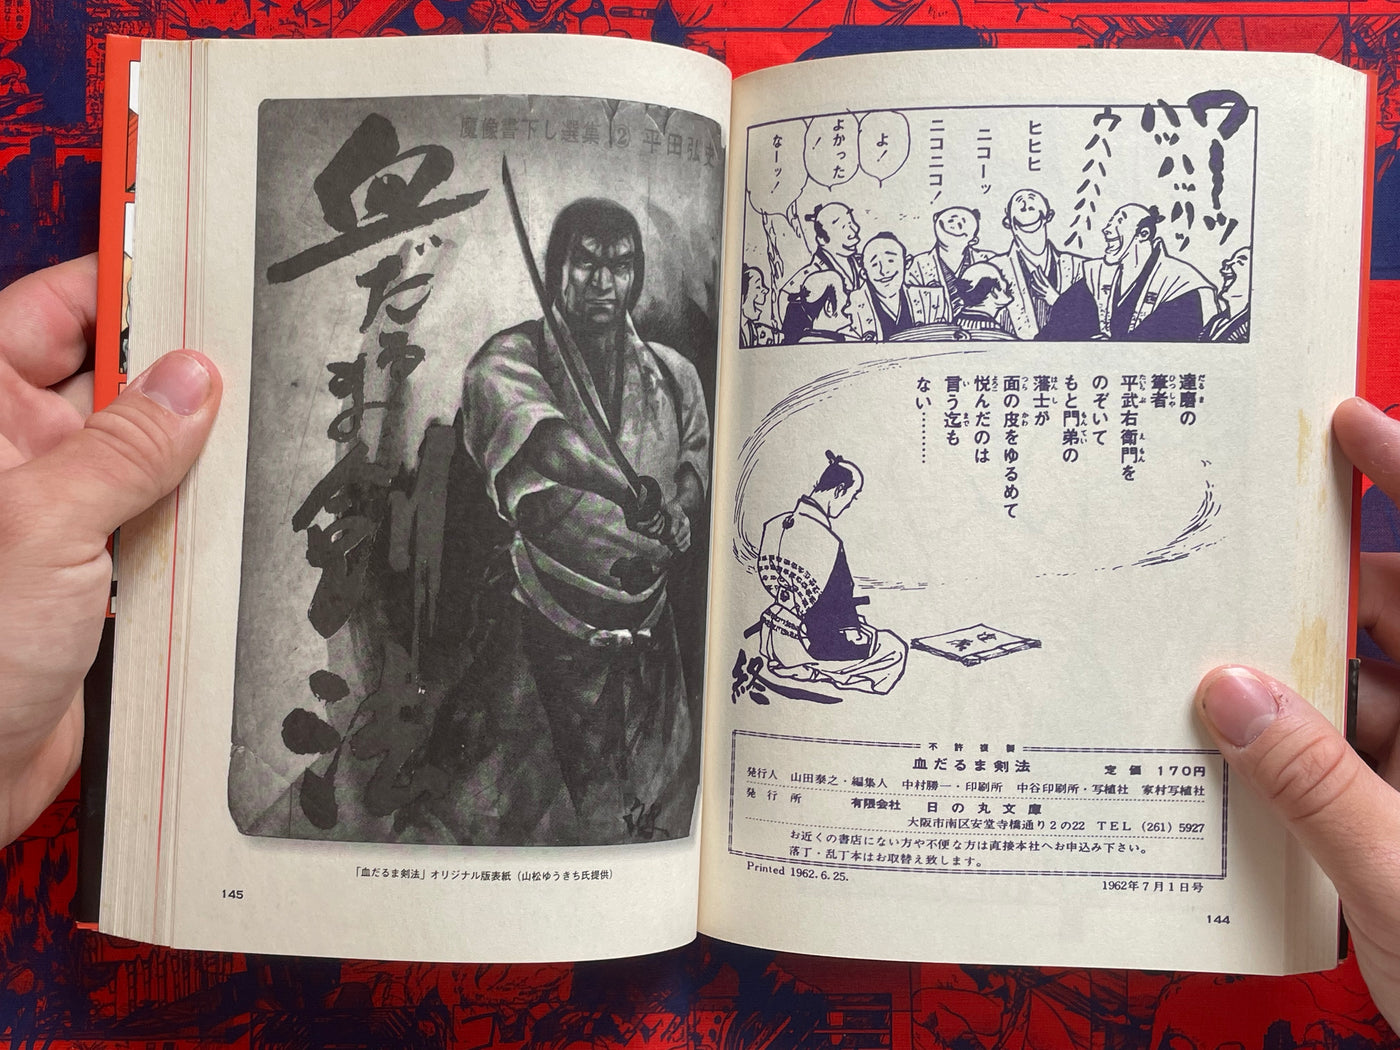 ワーーッ
ハッハッハッ
ウハハハハハ
ヒヒヒ
ニコーッ
ニコニコ!
よ!
よかった!
なーッ!
達磨の
筆者
平武右衛門を
のぞいて
もと門弟の
藩士が
面の皮をゆるめて
悦んだのは
言う迄も
ない……
終
不許複製
血だるま剣法 定価 170円
発行人 山田泰之・編集人 中村勝一・印刷所 中谷印刷所・写植社 家村写植社
発行所 有限会社 日の丸文庫
大阪市南区安堂寺橋通り2の22 TEL (261) 5927
お近くの書店にない方や不便な方は直接本社へお申込み下さい。
落丁・乱丁本はお取替え致します。
Printed 1962.6.25.
1962年7月1日号
144
魔像書下し選集② 平田弘史
血だるま剣法
「血だるま剣法」オリジナル版表紙(山松ゆうきち氏提供)
145